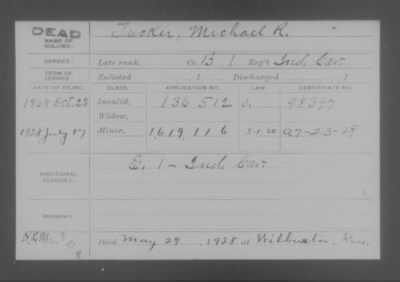 DEAD
NAME OF SOLDIER: Tucker, Michael R.
SERVICE: Late rank, Co. B. 1 Reg't Ind. Cav.
TERM OF SERVICE: Enlisted , 1 Discharged , 1
DATE OF FILING. CLASS. APPLICATION NO. LAW. CERTIFICATE NO.
1868 Oct. 23 Invalid, 136 512 98397
Widow,
1928 July Minor, 1619 116 5-1-20 A7-23-29
ADDITIONAL SERVICES: E. 1 - Ind. Cav.
REMARKS:
Died May 29, 1928, at